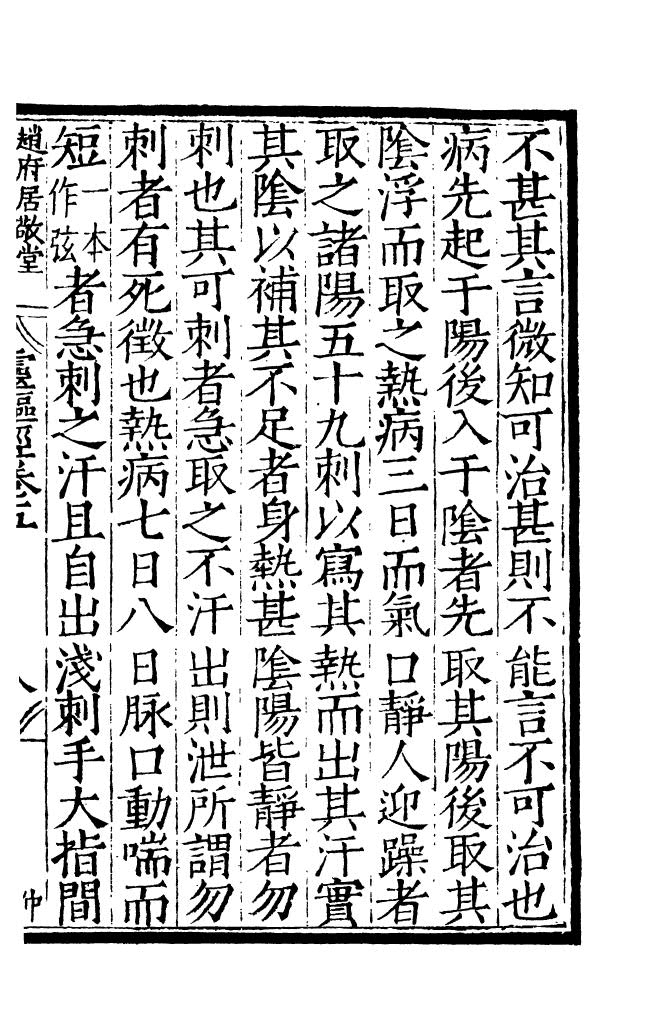 不甚其言微知可治甚則不能言不可治也
病先起于陽後入于陰者先取其陽後取其
陰浮而取之熱病三日而氣口靜人迎躁者
取之諸陽五十九刺以寫其熱而出其汗實
其陰以補其不足者身熱甚陰陽皆靜者勿
刺也其可刺者急取之不汗出則泄所謂勿
刺者有死徵也熱病七日八日脉口動喘而
短一本作弦者急刺之汗且自出淺刺手大指間
趙府居敬堂 靈樞經卷五 八 仲